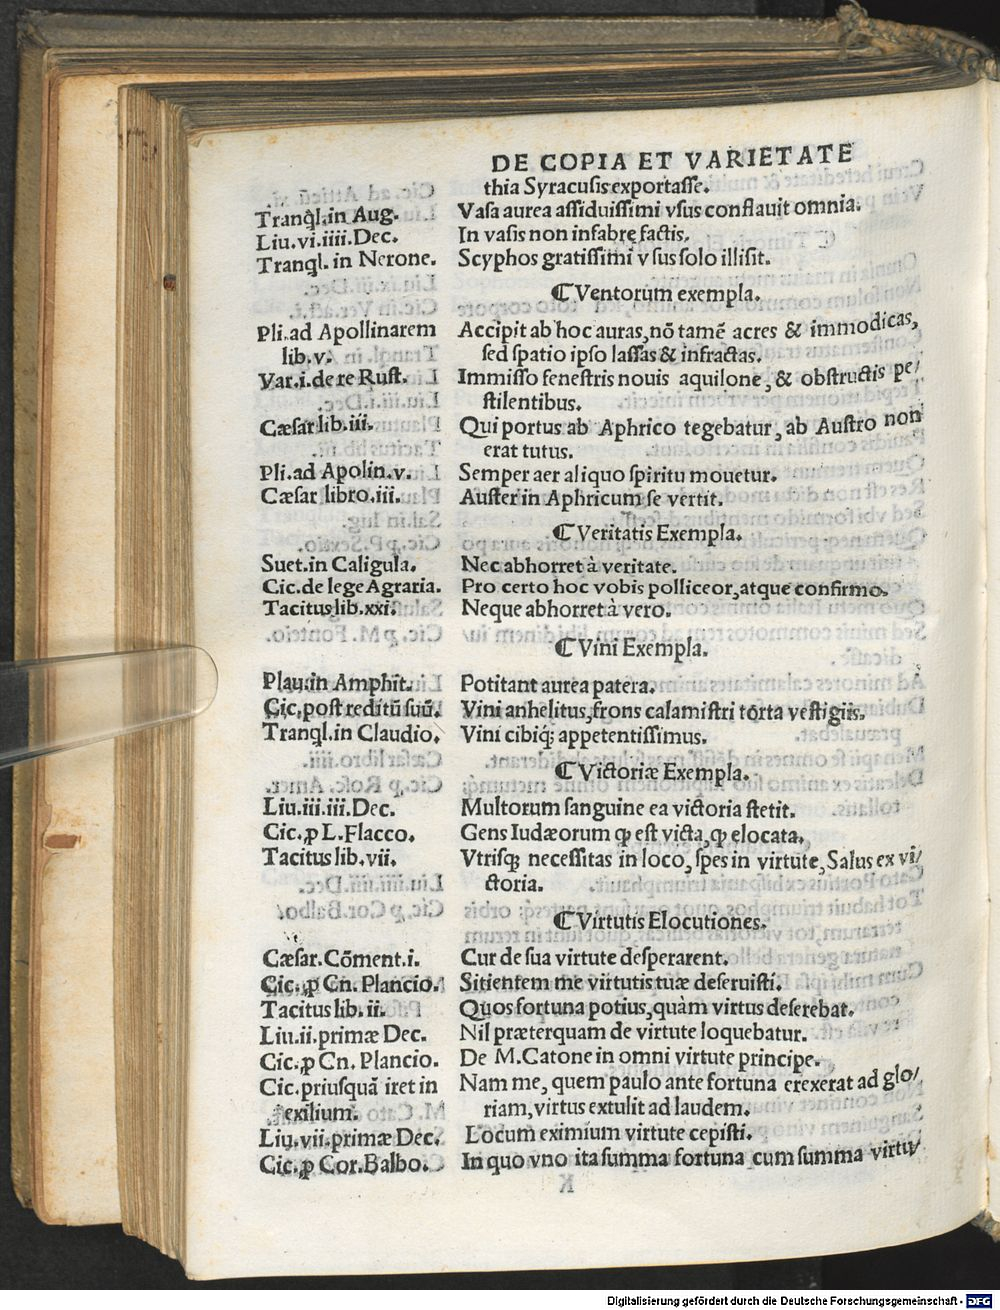 DE COPIA ET VARIETATE
thia Syracusis exportasse.
Tranq̃l. in Aug. Vasa aurea assiduissimi vsus conflauit omnia.
Liu. vi. iiii. Dec. In vasis non infabrę factis.
Tranql. in Nerone. Scyphos gratissimi vsus solo illisit.
⸿ Ventorum exempla.
Pli. ad Apollinarem Accipit ab hoc auras, nõ tamẽ acres & immodicas,
lib. v. sed spatio ipso lassas & infractas.
Var. i. de re Rust. Immisso fenestris nouis aquilone, & obstructis pe/
stilentibus.
Cæsar lib. iii. Qui portus ab Aphrico tegebatur, ab Austro non
erat tutus.
Pli. ad Apolin. v. Semper aer aliquo spiritu mouetur.
Cæsar libro. iii. Auster in Aphricum se vertit.
⸿ Veritatis Exempla.
Suet. in Caligula. Nec abhorret à veritate.
Cic. de lege Agraria. Pro certo hoc vobis polliceor, atque confirmo.
Tacitus lib. xxi. Neque abhorret à vero.
⸿ Vini Exempla.
Plau. in Amphit. Potitant aurea patera.
Cic. post reditũ suũ. Vini anhelitus, frons calamistri torta vestigiis.
Tranql. in Claudio. Vini cibiqꝫ appetentissimus.
⸿ Victoriæ Exempla.
Liu. iii. iii. Dec. Multorum sanguine ea victoria stetit.
Cic. ꝓ L. Flacco. Gens Iudæorum ꝙ est victa, ꝙ elocata.
Tacitus lib. vii. Vtrisqꝫ necessitas in loco, spes in virtute, Salus ex vi/
ctoria.
⸿ Virtutis Elocutiones.
Cæsar. Cõment. i. Cur de sua virtute desperarent.
Cic. ꝓ Cn. Plancio. Sitientem me virtutis tuæ deseruisti.
Tacitus lib. ii. Quos fortuna potius, quàm virtus deserebat.
Liu. ii. primæ Dec. Nil præterquam de virtute loquebatur.
Cic. ꝓ Cn. Plancio. De M. Catone in omni virtute principe.
Cic. priusquã iret in Nam me, quem paulo ante fortuna erexerat ad glo/
exilium. riam, virtus extulit ad laudem.
Liu. vii. primæ Dec. Locum eximium virtute cepisti.
Cic. ꝓ Cor. Balbo. In quo vno ita summa fortuna cum summa virtu/
Digitalisierung gefördert durch die Deutsche Forschungsgemeinschaft - DFG